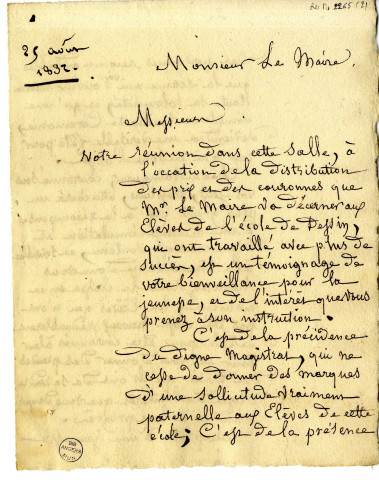 25 août
1832.
Monsieur Le Maire.
Messieurs
Votre réunion dans cette salle, à
l'occation de la distribution
des prix et des couronnes que
Mr. Le Maire va décerner aux
Elèves de l'école de Dessin,
qui ont travaillé avec plus de
succès, est un témoignage de
votre bienveillance pour la
jeunesse, et de l'intérêt que vous
prenez à son institution.
C'est de la présidence
du digne Magistrat, qui ne
cesse de donner des marques
d'une sollicitude vraiment
paternelle aux Elèves de cette
école; C'est de la présence